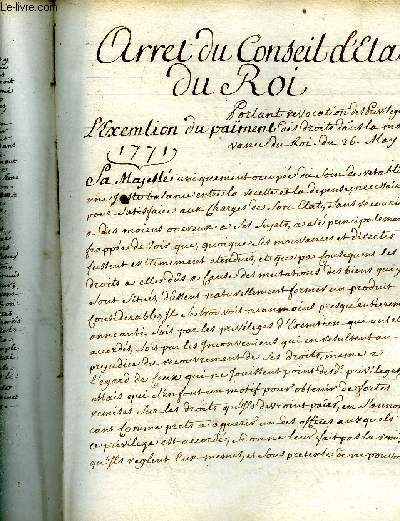 Le-livre.com
Arret du Conseil d'Eta
du Roi
Portant revocation de Privileg
L'Exemtion du paiment des droits dans la mo
vance du Roi. du 26. May
1771
Sa Majesté uniquement occupée du soin de retabli
une juste balance entre la recette et la depense necessaire
pour satisfaire aux Charges de son Etat, sans recourir
a des moiens onereux a ses Sujets, a été principalement
frappée de voir que, quoique les mouvances et directes
fussent extrêmement etendües, et que par consequent les
droits a elle dûs a cause des mutations des biens que y
sont situés dussent naturellement former un produit
Considerable, Il se trouvoit neanmoins presque entieremen
aneanti soit par les privileges d'Exemtion que
accordés, soit par les Inconveniens qui en resultent au
prejudice du recouvrement de ses droits, meme a
l'egard de Ceux qui ne Jouissent point des privileges
mais qui s'en font un motif pour obtenir de fortes
remises sur les droits qu'ils devroient paier, en s'annon
cant Comme prets a acquerir un des offices auxquels
ce privilege est accordé, si on ne leur fait pas la remi
qu'ils reglent Eux memes, et sous pretexte de ne pouvoir